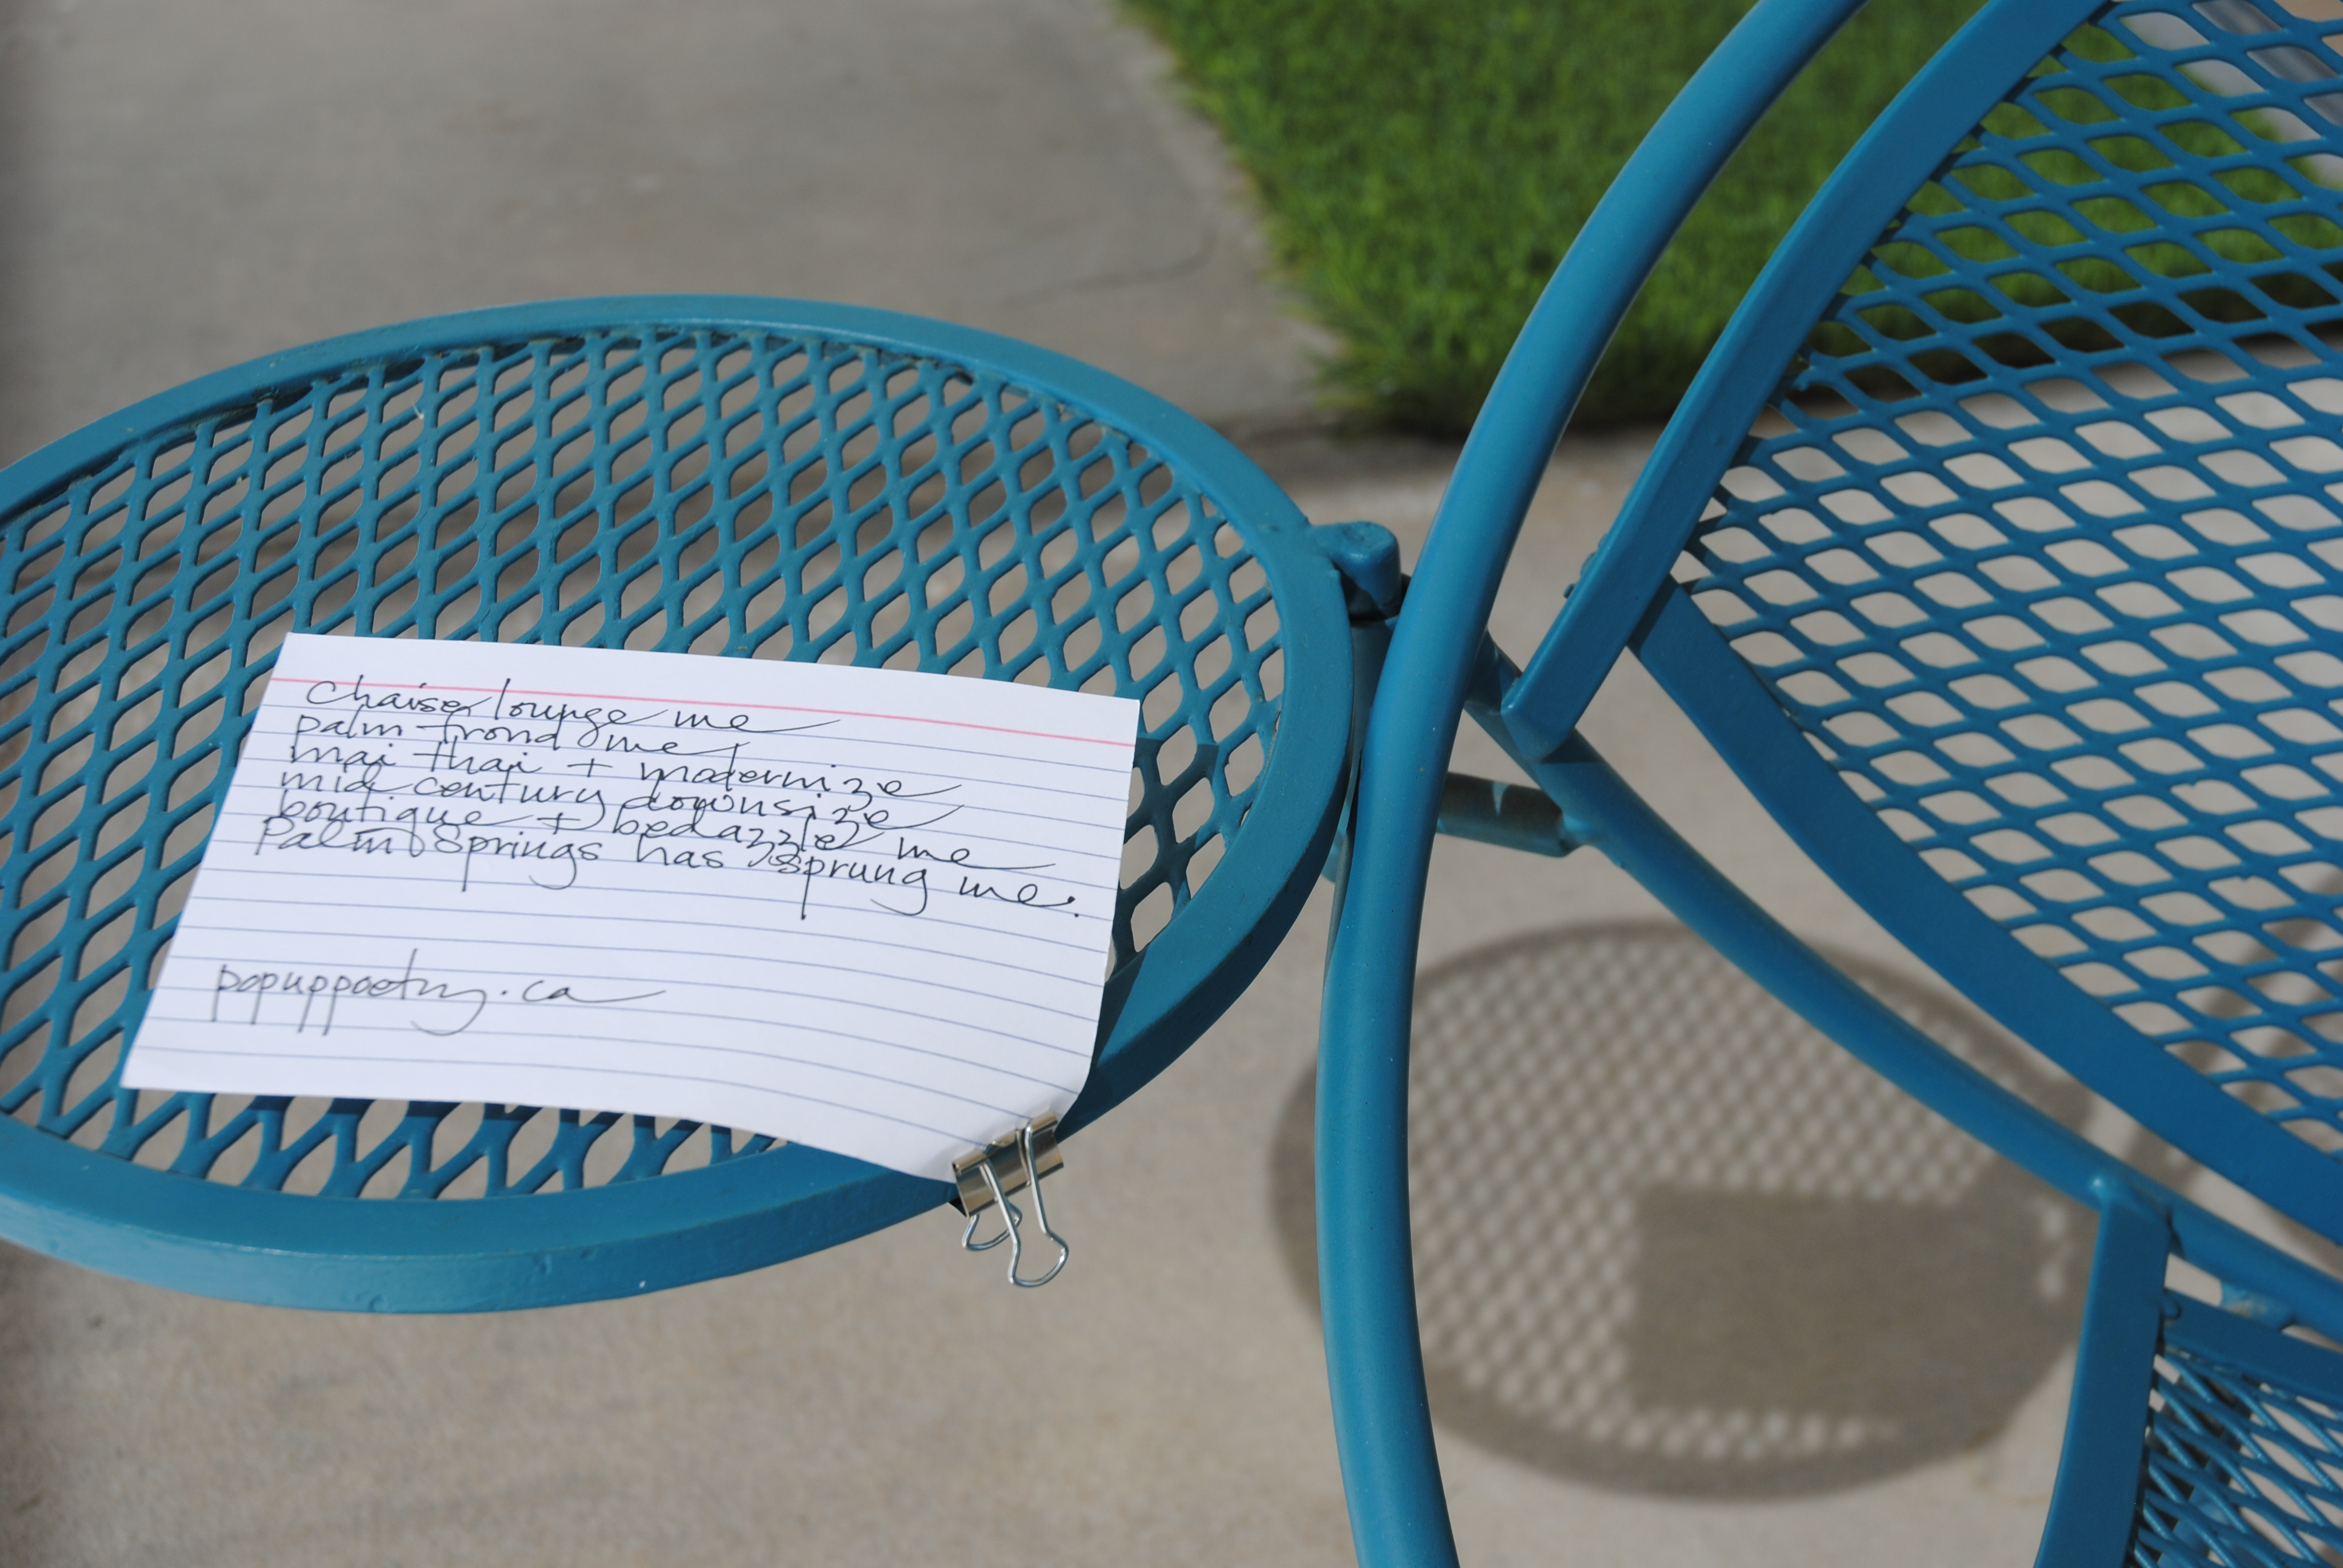 Chaise lounge me
palm frond me
mai thai + modernize
mid century downsize
boutique + bedazzle me
Palm Springs has sprung me.
popuppoetry.ca